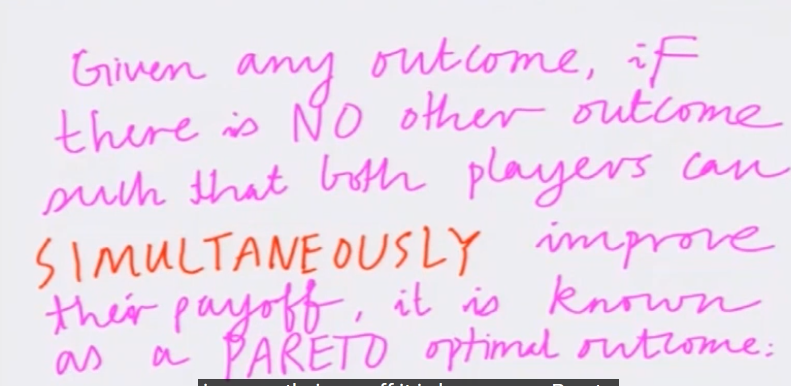 Given any outcome, if
there is NO other outcome
such that both players can
SIMULTANEOUSLY improve
their payoff, it is known
as a PARETO optimal outcome: